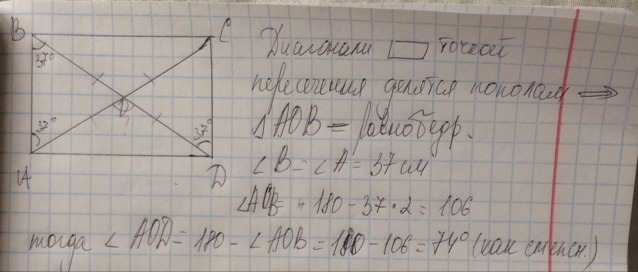 B C
37° 37° 37°
O
A D
Диагонали ▭ точкой
пересечения делятся пополам ⟹
△ AOB = равнобедр.
∠B = ∠A = 37 см
∠AOB = 180 - 37 · 2 = 106
тогда ∠ AOD = 180 - ∠AOB = 180 - 106 = 74° (как смежн.)